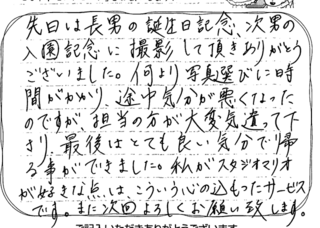 先日は長男の誕生日記念、次男の
入園記念に撮影して頂きありがとう
ございました。何より写真選びに時
間がかかり、途中気分が悪くなった
のですが担当の方が大変気遣って下
さり、最後はとても良い気分で帰
る事ができました。私がスタジオマリオ
が好きな点は、こういう心の込もったサービス
です。また次回よろしくお願い致します。
ご記入いただきありがとうございます